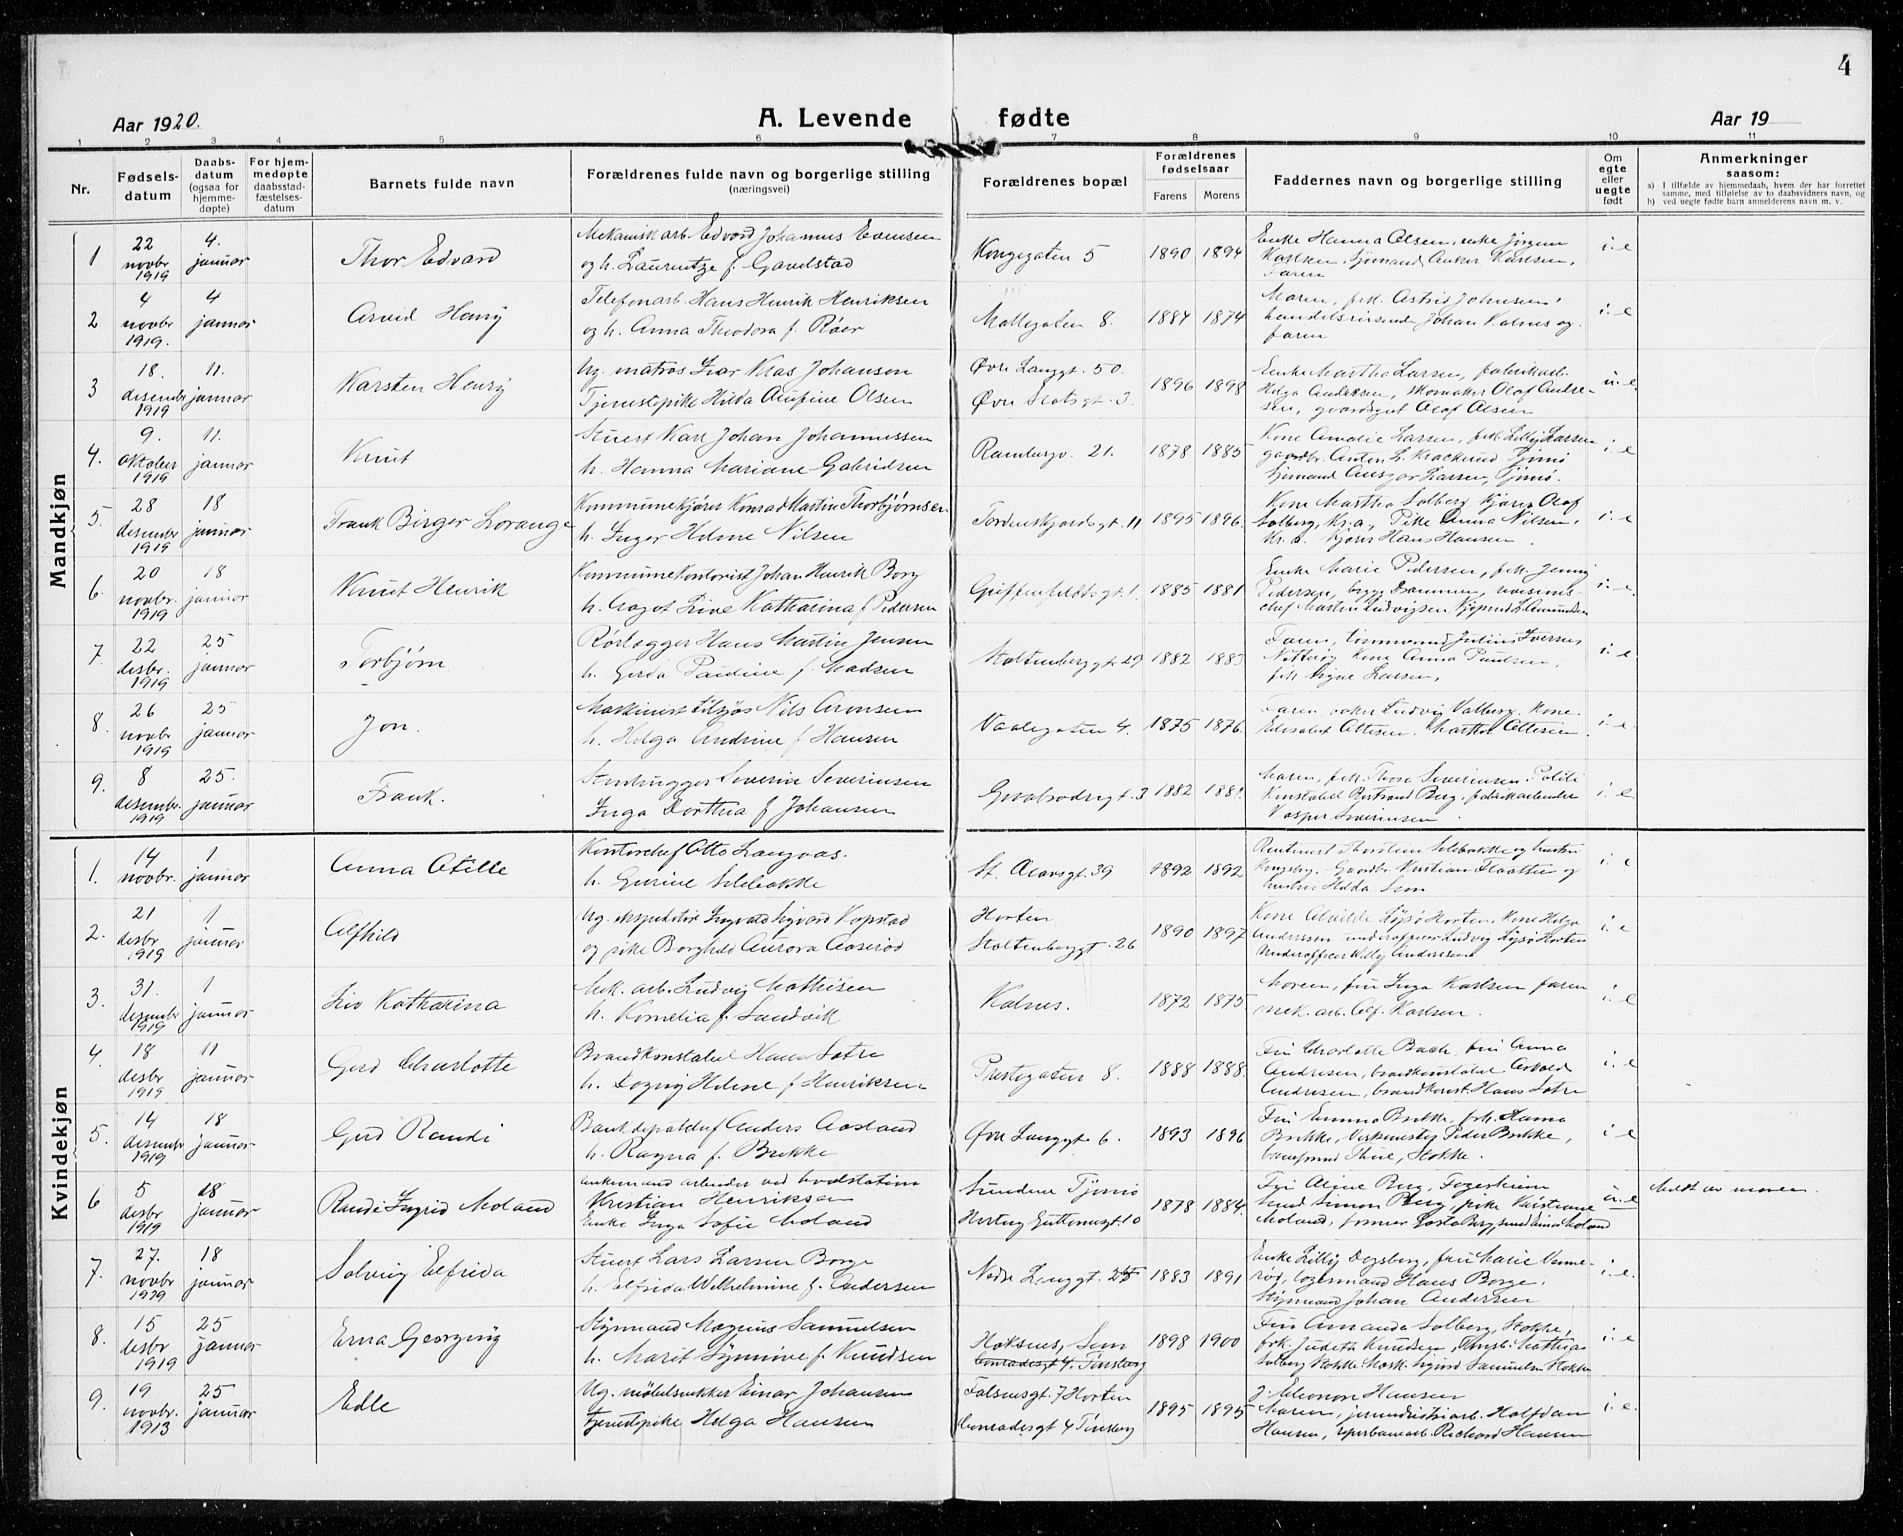 4
Aar 1920.
A. Levende fødte
Aar 19
1 2 3 4 5 6 7 8 9 10 11
Nr.
Fødsels-
datum
Daabs-
datum
(ogsaa for
hjemme-
døpte)
For hjem-
medøpte
daabsstad-
fæstelses-
datum
Barnets fulde navn
Forældrenes fulde navn og borgerlige stilling
(næringsvei)
Forældrenes bopæl
Forældrenes
fødselsaar
Farens Morens
Faddernes navn og borgerlige stilling
Om
egte
eller
uegte
født
Anmerkninger
saasom:
a) I tilfælde av hjemmedaab, hvem der har forrettet
samme, med tilføielse av to daabsvidners navn, og
b) ved uegte fødte barn anmelderens navn m. v.
Mandkjøn
1 22 novbr 1919 4. januar Thor Edvard
Mekanisk arb. Edvard Johannes Evensen
og h. Laurentze f. Gavelstad
Kongegaten 5 1890 1894
Enke Hanna Olsen, enke Jørgine
Karlsen, sjømand Anker Karlsen,
Faren
i. e
2 4 novbr 1919. 4 januar Arvid Henry
Telefonarb. Hans Henrik Henriksen
og h. Anna Theodora f. Røer
Møllegaten 8. 1884 1874
Moren, frk. Astrid Johnsen,
handelsreisende Johan Kalnes og
faren
i. e
3 18. desembr 1919 11. januar Karsten Henry
Ug. matros Ivar Klas Johansen
Tjenestepike Hilda Josefine Olsen
Øvre Langgt. 50.
Øvre Slotsgt. 3.
1896 1898
Enke Martha Larsen, fabrikarb.
Helga Andersen, skomaker Olaf Andre-
sen, gaardsgut Olaf Olsen
u. e
4. 9. oktober 1919 11. januar Knut
Stuert Karl Johan Johannessen
h. Hanna Mariane Gabrielsen
Rambergv. 21. 1878 1885
Kone Amalie Larsen, frk. Lilly Larsen
gaardbr. Anton L. Krackerud Tjømø
Sjømand Ansgar Larsen, Tjømø.
i. e
5. 28 desembr 1919 18 januar Frank Birger Lorange
Kommunekjører Konrad Martin Thorbjørnsen
h. Inger Helene Nilsen
Tordenskjoldsgt. 11 1895 1896.
Kone Martha Solberg, kjører Olaf
Solberg, Kr.a., Pike Anna Nilsen,
Kr. a. kjører Hans Hansen.
i. e
6. 20 novbr. 1919 18 januar Knut Henrik
Kommunekontorist Johan Henrik Borg
h. Aagot Live Katharina f. Pedersen
Griffenfeldtsgt. 1. 1885 1881
Enke Marie Pedersen, frk. Jenny
Pedersen, brygg Drammen, revisions-
chef Martin Ludvigsen
i. e
7. 22 desbr. 1919 25 januar Torbjørn
Rørlægger Hans Martin Jensen
h. Gerda Pauline f. Madsen
Stoltenbergsgt 29 1882 1883
Faren, tømmermd Julius Iversen
Nøtterøy Kone Anna Paulsen,
frk Signe Larsen,
i. e
8. 26 novbr 1919 25 januar Jon.
Maskinist tilsjøs Nils Aronsen
h. Helga Andrine f. Hansen
Vaalegaten 4. 1875 1876.
Faren, Ludvig Valberg. Kone.
Elisabet Ottesen. Martha Ottesen
i. e
9. 8 desembr. 1919 25. januar Frank.
Stenhugger Severin Severinsen
Inga Dorthea f. Johansen
Graabrødregt. 3 1882 1881.
Moren, frk. Thora Severinsen. Politi
Konstabel Bertrand Berg, fabrikarbeider
Kasper Severinsen.
i. e
Kvindekjøn
1. 14 novbr. 1 januar Anna Otelie
Kontorchef Otto Langaas.
h. Gurine Selebakke
St. Olavsgt. 39 1892 1892
Rentenist Thorstein Selebakke og hustru
Kongsberg. Gaardbr. Kristian Flaatten og
hustru Hilda Sem
i. e
2. 21 desbr 1919 1 januar Alfhild
Ug. ekspeditør Ingvald Sigvard Kopstad
og pike Borghild Aurora Aaserød
Horten
Stoltenbergsgt. 26
1890 1897
Kone Alvilde Løpsø Horten, Kone Helga
Andersson underofficer Ludvig Løpsø Horten
Underofficer Willy Anderssen
i. e
3. 31. desembr 1919 1 januar Liv Katharina
Mek. arb. Ludvig Mathisen
h. Kornelia f. Sandvik
Kalnes. 1872 1875
Moren, fru Inga Karlsen faren
mek. arb. Alf. Karlsen.
i. e
4. 18 desbr 1919 11 januar Gerd Charlotte
Brandkonstabel Hans Sætre
h. Dagny Helene f. Henriksen
Prestegaten 8. 1888 1888.
Fru Charlotte Bach, fru Anna
Andresen, brandkonstabel Arvald
Andresen, brandkonst. Hans Sætre
i. e
5. 14 desembr 1919 18 januar Gerd Randi
Bankdepotchef Anders Aasland
h. Ragna f. Brekke
Øvre Langgt. 6. 1893 1896
Fru Emma Brekke, frk. Hanna
Brekke, Verksmester Peder Brekke,
banefmand Thue, Stokke.
i. e
6 5 desbr 1919 18 januar Randi Ingrid Moland
enkemand arbeider ved hvalstation
Kristian Henriksen
Enke Inga Sofie Moland
Sundene Tjømø
Hertug Guttormsgt. 10
1878 1884.
Fru Aline Berg, Fogerheim
Smed Simon Berg, pike Kristiane
Moland, former Gøsta Berg, smed Einar Moland
u. e
Meldt av moren.
7. 27. novbr 1919 18 januar Solveig Elfrida
Stuert Lars Larsen Borge
h. Elfrida Wilhelmine f. Andersen
Nedre Langgt. 25 1883 1891
Enke Lilly Dogsberg, fru Marie Unne-
rød, logermand Hans Borge.
Styrmand Johan Andersen
i. e.
8. 15 desbr 1919 25 januar Erna Georging
Styrmand Magnus Samuelsen
h. Marit Synnøve f. Knudsen
Hoksnes, Sem
Conradesgt 4. Tønsberg
1898 1900
Fru Amanda Solberg, Stokke,
frk. Judith Knudsen, Mathias
Solberg Stokke Mask. Sigurd Samuelsen Stokke
i. e
9. 19 novbr. 1913 25 januar Edle
Ug. møbelsnekker Einar Johansen
Tjenestepike Helga Hansen
Falsensgt. 7 Horten
Conradesgt 4 Tønsberg
1895 1895
J. Eleonor Hansen
Moren, jernindustriarb. Halfdan
Hansen, reperbanearb. Richard Hansen
i. e.